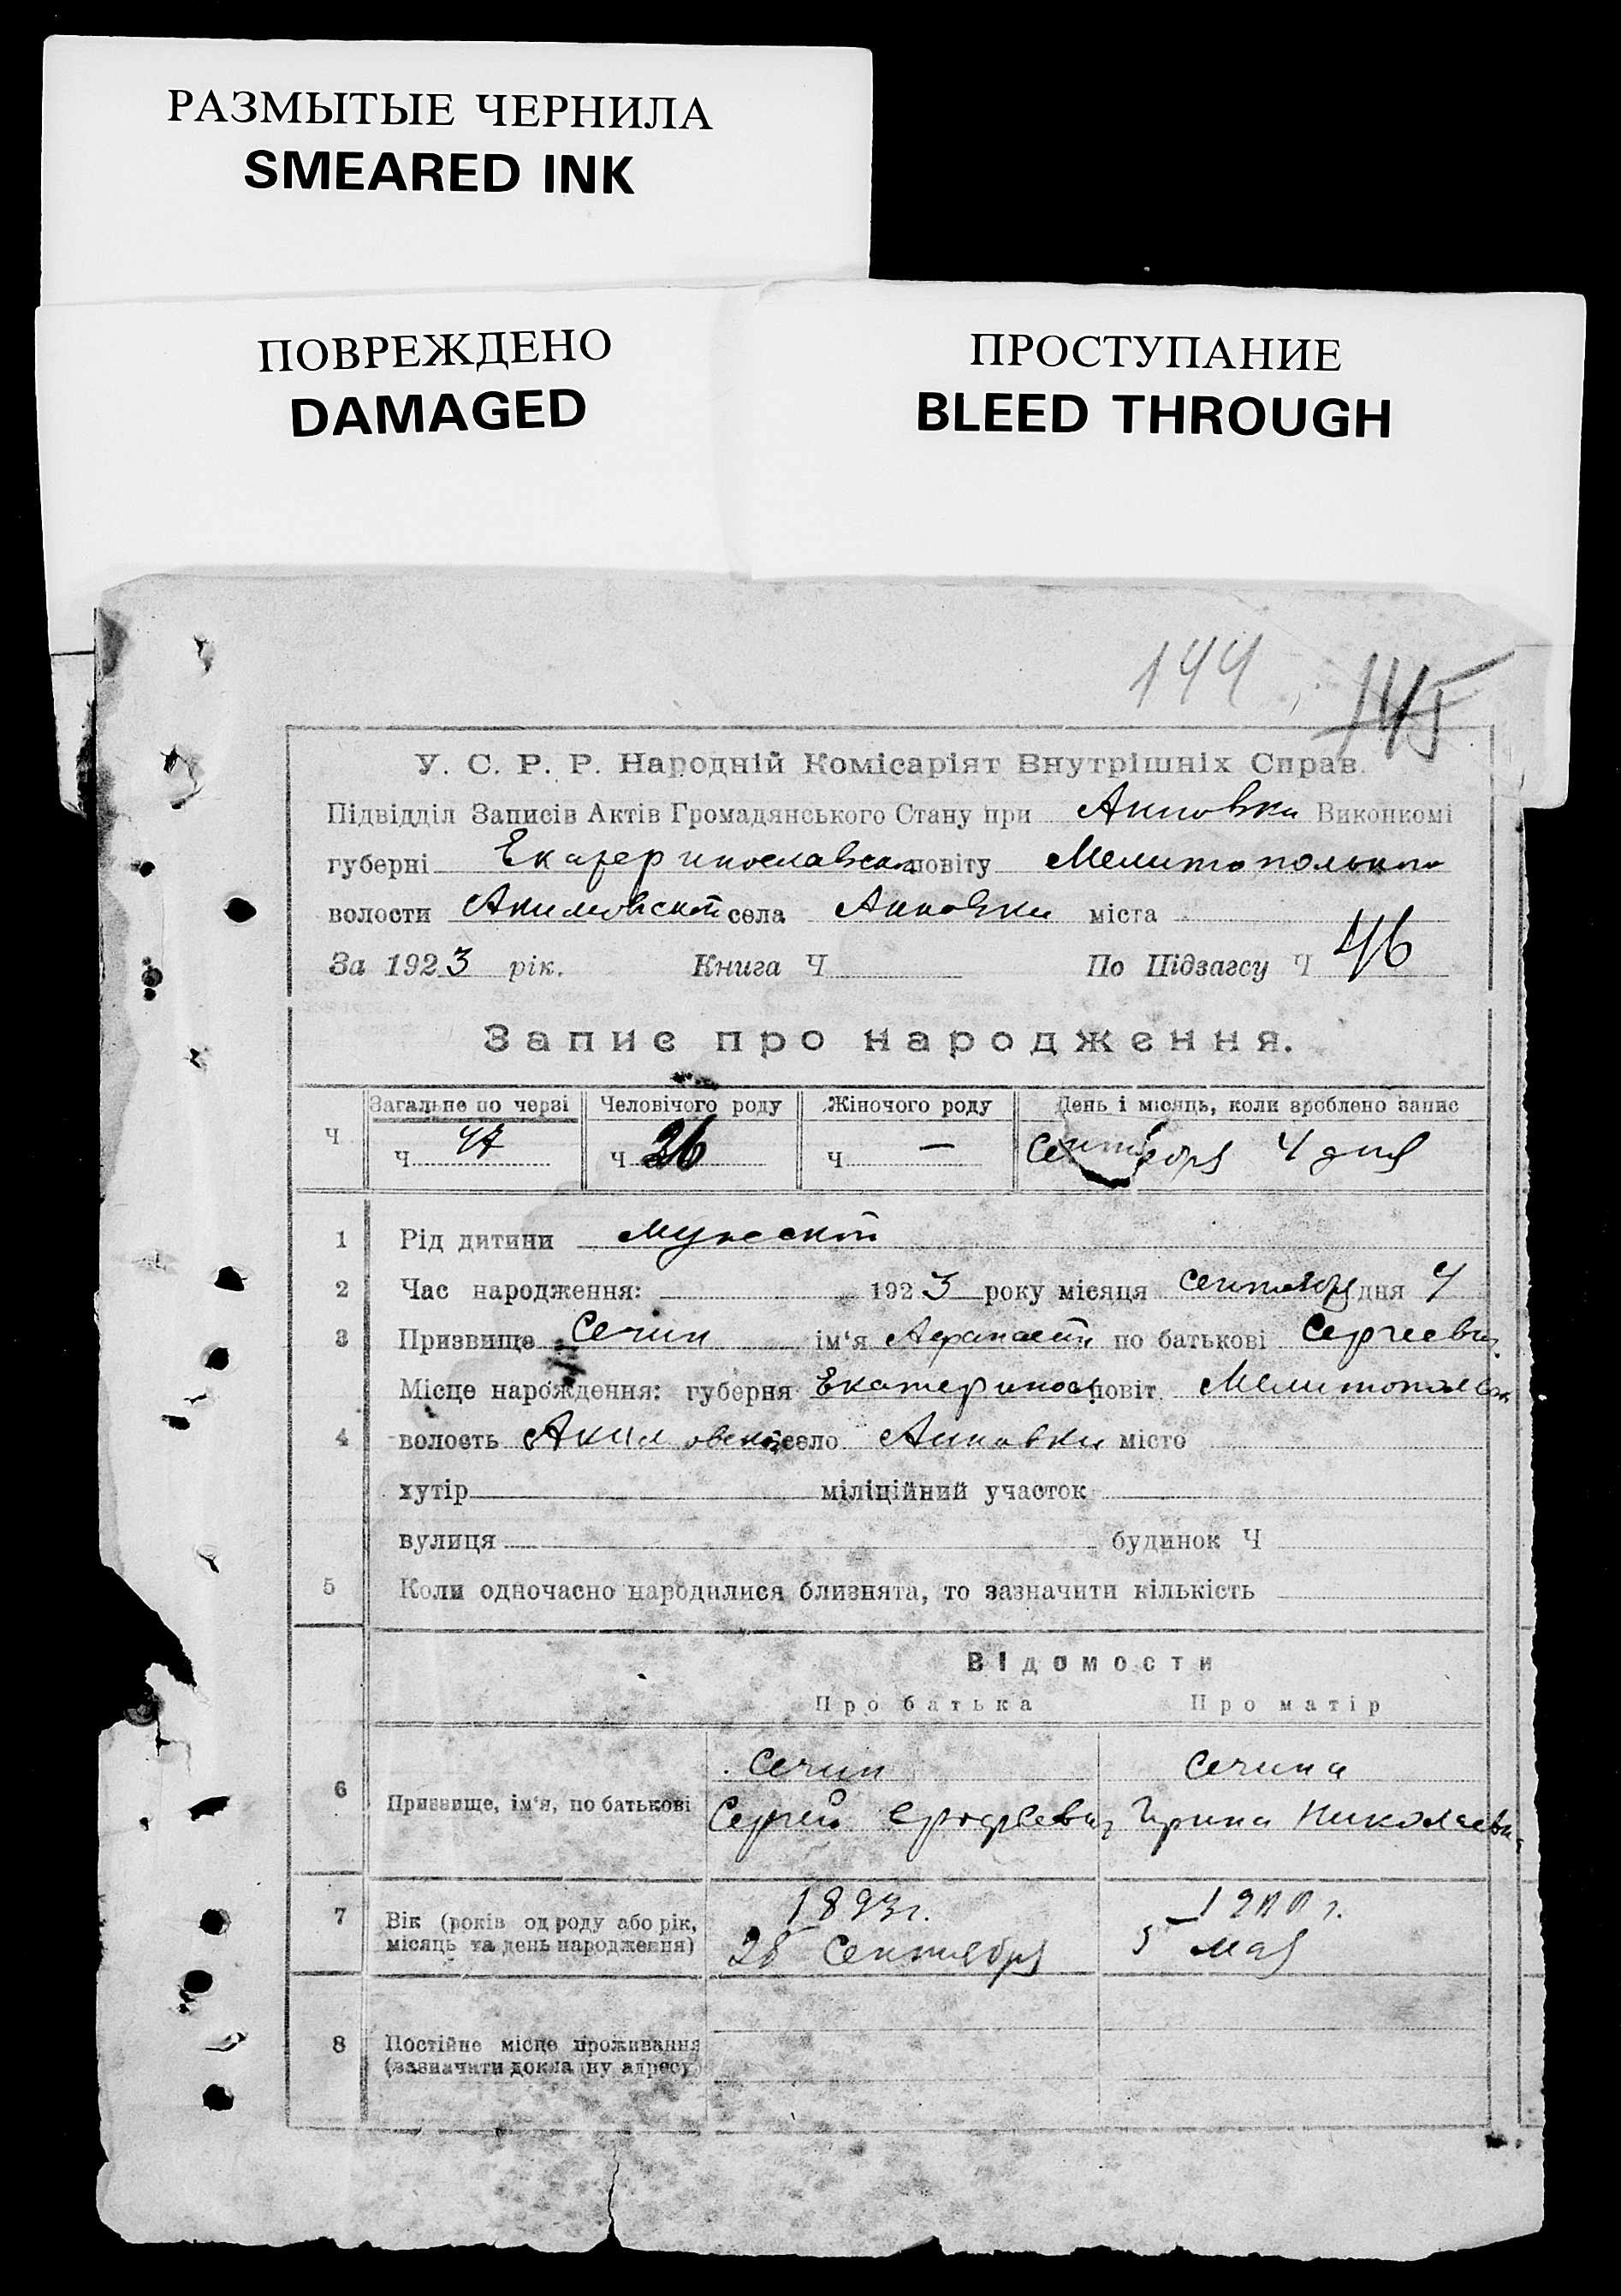 РАЗМЫТЫЕ ЧЕРНИЛА
SMEARED INK
ПОВРЕЖДЕНО
DAMAGED
ПРОСТУПАНИЕ
BLEED THROUGH
144 145
У. С. Р. Р. Народній Комісаріят Внутрішніх Справ.
Підвідділ Записів Актів Громадянського Стану при Анновки Виконкомі
губерні Екатеринославской повіту Мелитопольского
волости Акимовской села Анновки міста
За 1923 рік. Книга Ч По Підзагсу Ч 46
Запис про народження.
Загальне по черзі Человічого роду Жіночого роду День і місяць, коли зроблено запис
Ч Ч 47 Ч 26 Ч — Сентября 4 дня
1 Рід дитини мужской
2 Час народження: 1923 року місяця сентября дня 4
3 Призвище Сечин ім'я Афанасий по батькові Сергеевич
Місце народження: губерня Екатеринос повіт Мелитопольск
4 волость Акимовской село Анновки місто
хутір міліційний участок
вулиця будинок Ч
5 Коли одночасно народилися близнята, то зазначити кількість
Відомости
Про батька Про матір
Сечин Сечина
6 Призвище, ім'я, по батькові Сергей Ирина Николаевна
1893г. 1900 г.
7 Вік (років од роду або рік,
місяць та день народження) 28 Сентября 5 мая
8 Постійне місце проживання
(зазначити докладну адресу)